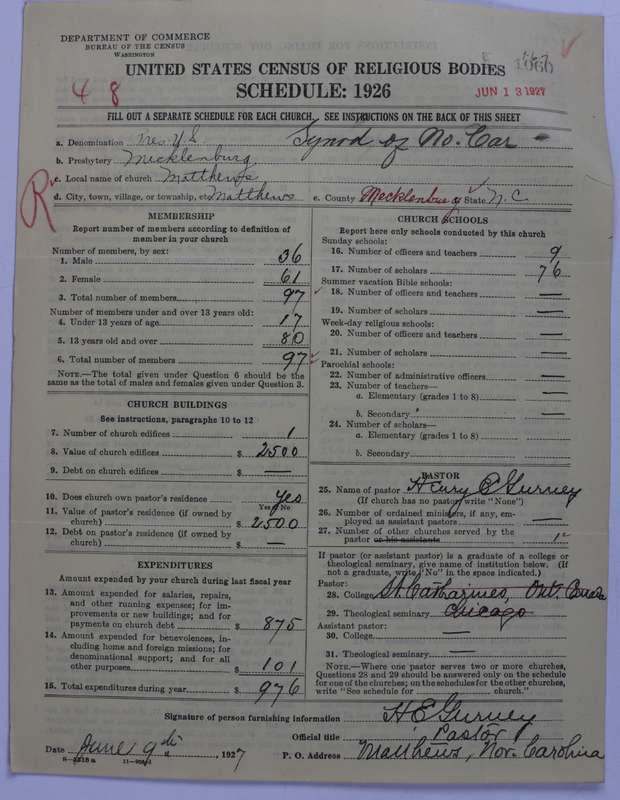 DEPARTMENT OF COMMERCE
BUREAU OF THE CENSUS
WASHINGTON
1060
UNITED STATES CENSUS OF RELIGIOUS BODIES
SCHEDULE: 1926
4 8
JUN 13 1927
FILL OUT A SEPARATE SCHEDULE FOR EACH CHURCH. SEE INSTRUCTIONS ON THE BACK OF THIS SHEET
a. Denomination Pres. U.S. Synod of No. Car
b. Presbytery Mecklenburg
c. Local name of church Matthews
R
d. City, town, village, or township, etc Matthews e. County Mecklenburg State N. C.
MEMBERSHIP
Report number of members according to definition of
member in your church
Number of members, by sex:
1. Male 36
2. Female 61
3. Total number of members 97
Number of members under and over 13 years old:
4. Under 13 years of age 17
5. 13 years old and over 80
6. Total number of members 97
NOTE.—The total given under Question 6 should be the
same as the total of males and females given under Question 3.
CHURCH BUILDINGS
See instructions, paragraphs 10 to 12
7. Number of church edifices 1
8. Value of church edifices $ 2500
9. Debt on church edifices $ —
10. Does church own pastor's residence yes
Yes or No
11. Value of pastor's residence (if owned by
church) $ 2500
12. Debt on pastor's residence (if owned by
church) $ —
EXPENDITURES
Amount expended by your church during last fiscal year
13. Amount expended for salaries, repairs,
and other running expenses; for im-
provements or new buildings; and for
payments on church debt $ 875
14. Amount expended for benevolences, in-
cluding home and foreign missions; for
denominational support; and for all
other purposes $ 101
15. Total expenditures during year $ 976
CHURCH SCHOOLS
Report here only schools conducted by this church
Sunday schools:
16. Number of officers and teachers 9
17. Number of scholars 76
Summer vacation Bible schools:
18. Number of officers and teachers —
19. Number of scholars —
Week-day religious schools:
20. Number of officers and teachers —
21. Number of scholars —
Parochial schools:
22. Number of administrative officers —
23. Number of teachers—
a. Elementary (grades 1 to 8) —
b. Secondary —
24. Number of scholars—
a. Elementary (grades 1 to 8) —
b. Secondary
PASTOR
25. Name of pastor Henry E Gurney
(If church has no pastor, write "None")
26. Number of ordained ministers, if any, em-
ployed as assistant pastors —
27. Number of other churches served by the
pastor or his assistants 1
If pastor (or assistant pastor) is a graduate of a college or
theological seminary, give name of institution below. (If
not a graduate, write "No" in the space indicated.)
Pastor:
28. College St. Catharines, Ont. Canada
29. Theological seminary Chicago
Assistant pastor:
30. College —
31. Theological seminary —
NOTE.—Where one pastor serves two or more churches,
Questions 28 and 29 should be answered only on the schedule
for one of the churches; on the schedules for the other churches,
write "See schedule for church."
Signature of person furnishing information H E Gurney
Official title Pastor
Date June 9th, 1927 P. O. Address Matthews, Nor. Carolina